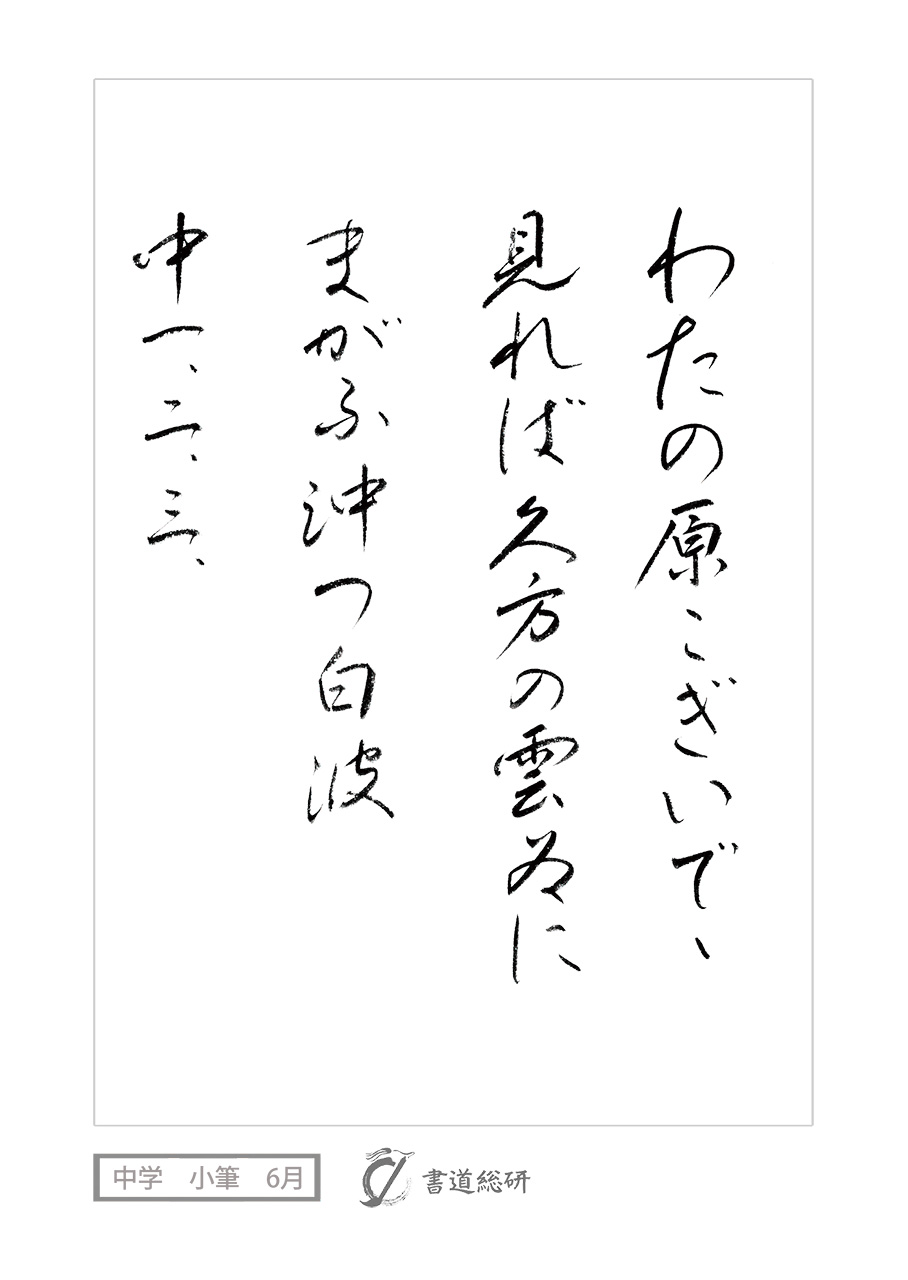 わたの原こぎいでヽ
見れば久方の雲ゐに
まがふ沖つ白波
中一、二、三、
中学　小筆　6月
書道総研